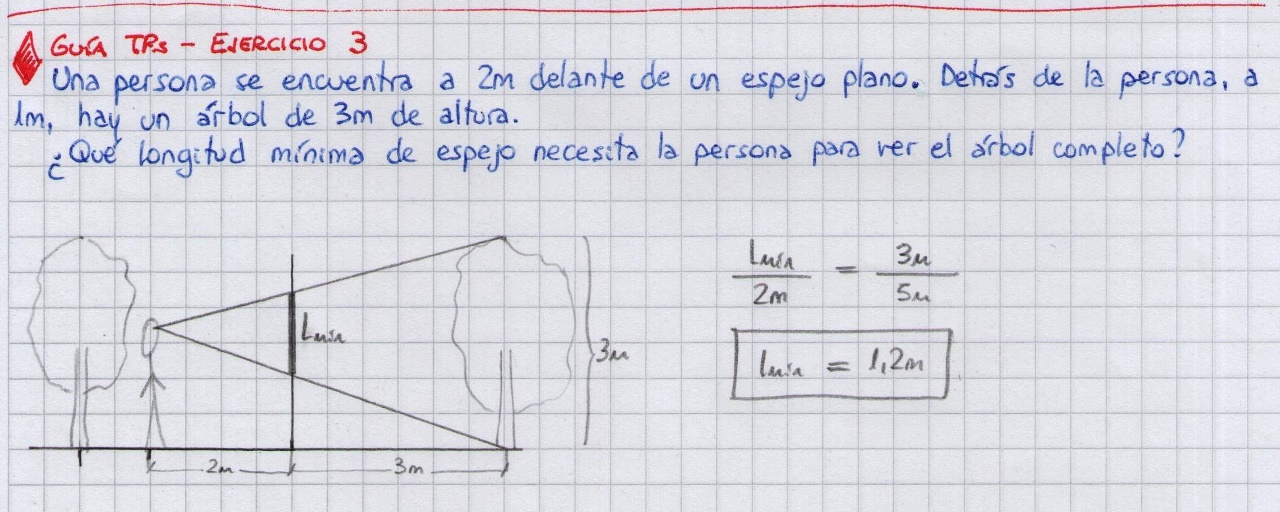 GUÍA TPs - EJERCICIO 3
Una persona se encuentra a 2m delante de un espejo plano. Detrás de la persona, a
1m, hay un árbol de 3m de altura.
¿Qué longitud mínima de espejo necesita la persona para ver el árbol completo?
Lmín
3m
2m
3m
Lmín / 2m = 3m / 5m
Lmín = 1,2m